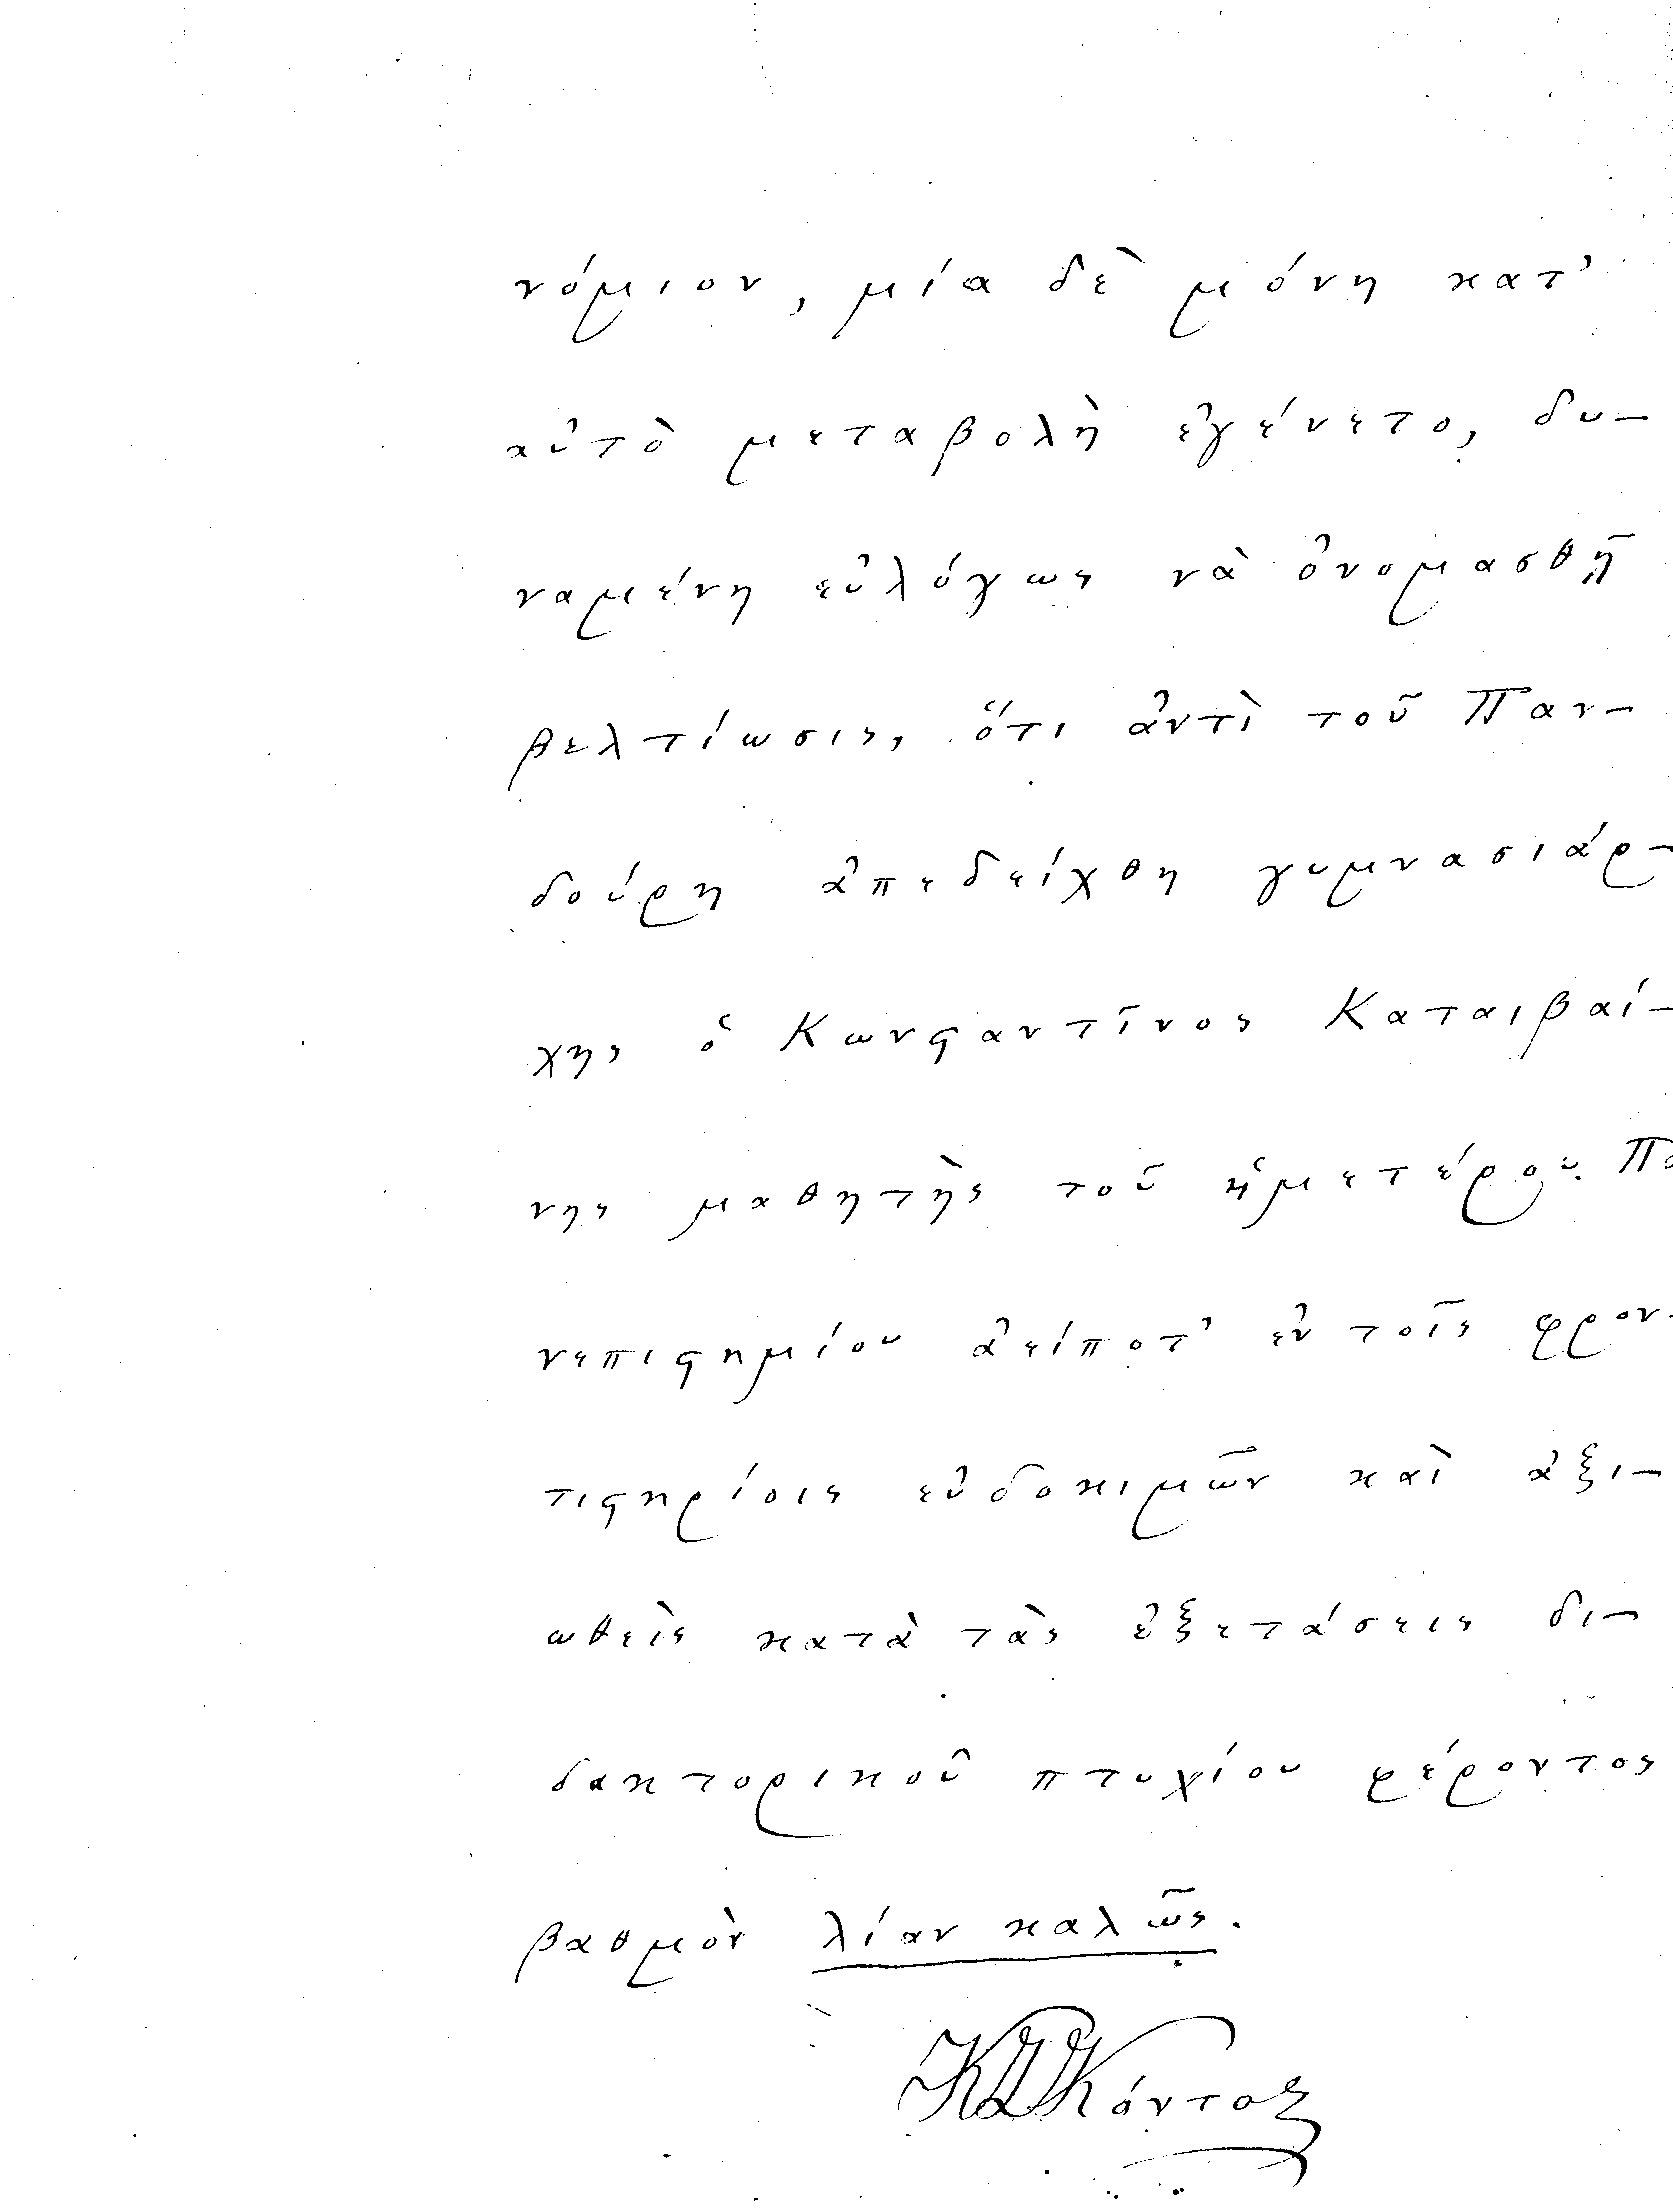 νόμιον, μία δὲ μόνη κατ'
αὐτὸ μεταβολὴ ἐγένετο, δυ-
ναμένη εὐλόγως νὰ ὀνομασθῇ
βελτίωσις, ὅτι ἀντὶ τοῦ Παν-
δούρη ἀπεδείχθη γυμνασιάρ-
χης ὁ Κωνϛαντῖνος Καταιβαί-
νης μαθητὴς τοῦ ἡμετέρου Πα
νεπιϛημίου ἀείποτ' ἐν τοῖς φρον-
τιϛηρίοις εὐδοκιμῶν καὶ ἀξι-
ωθεὶς κατὰ τὰς ἐξετάσεις δι-
δακτορικοῦ πτυχίου φέροντος
βαθμὸν λίαν καλῶς.
ΚΣΚόντος